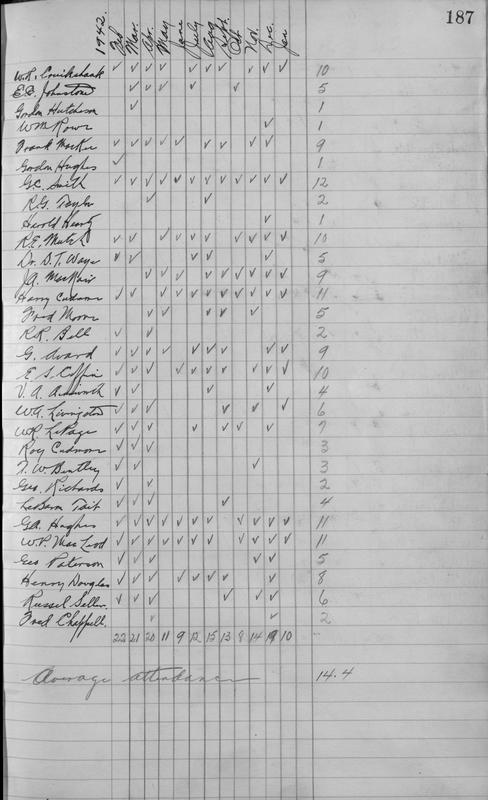 187
1942. Feb Mar. Apr. May June July Aug Sept. Oct. Nov. Dec. Jan
W.R. Cruikshank ✓ ✓ ✓ ✓ ✓ ✓ ✓ ✓ ✓ ✓ 10
E.C. Johnstone ✓ ✓ ✓ ✓ ✓ 5
Gordon Hutcheson ✓ 1
Wm Rowe ✓ 1
Frank MacKie ✓ ✓ ✓ ✓ ✓ ✓ ✓ ✓ ✓ 9
Gordon Hughes ✓ 1
G.C. Smith ✓ ✓ ✓ ✓ ✓ ✓ ✓ ✓ ✓ ✓ ✓ ✓ 12
R.G. Taylor ✓ ✓ 2
Harold ✓ 1
R.E. Mutch ✓ ✓ ✓ ✓ ✓ ✓ ✓ ✓ ✓ ✓ 10
Dr. D.T. Waye ✓ ✓ ✓ ✓ ✓ 5
J.A. MacNair ✓ ✓ ✓ ✓ ✓ ✓ ✓ ✓ ✓ 9
Harry Cudmore ✓ ✓ ✓ ✓ ✓ ✓ ✓ ✓ ✓ ✓ ✓ 11
Fred Moore ✓ ✓ ✓ ✓ ✓ 5
R.R. Bell ✓ ✓ 2
G. Auard ✓ ✓ ✓ ✓ ✓ ✓ ✓ ✓ ✓ 9
E. S. Coffin ✓ ✓ ✓ ✓ ✓ ✓ ✓ ✓ ✓ ✓ 10
V. A. Ainsworth ✓ ✓ ✓ ✓ 4
W.A. Livingston ✓ ✓ ✓ ✓ ✓ ✓ 6
W.R. LePage ✓ ✓ ✓ ✓ ✓ ✓ ✓ 7
Roy Cudmore ✓ ✓ ✓ 3
F. W. Bentley ✓ ✓ ✓ 3
Geo. Richards ✓ ✓ 2
LeBaron Tait ✓ ✓ ✓ ✓ 4
G.A. Hughes ✓ ✓ ✓ ✓ ✓ ✓ ✓ ✓ ✓ ✓ ✓ 11
W.P. MacLeod ✓ ✓ ✓ ✓ ✓ ✓ ✓ ✓ ✓ ✓ ✓ 11
Geo Paterson ✓ ✓ ✓ ✓ ✓ 5
Henry Douglas ✓ ✓ ✓ ✓ ✓ ✓ ✓ ✓ 8
Russel Seller ✓ ✓ ✓ ✓ ✓ ✓ 6
Fred Chappell. ✓ ✓ 2
22 21 20 11 9 12 15 13 8 14 19 10
Average attendance 14.4